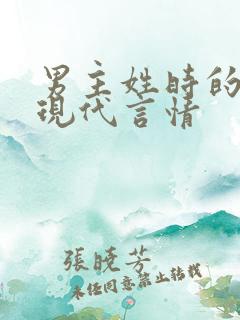 男主姓時的
現代言情
張曉芳
未任同意禁止轉載